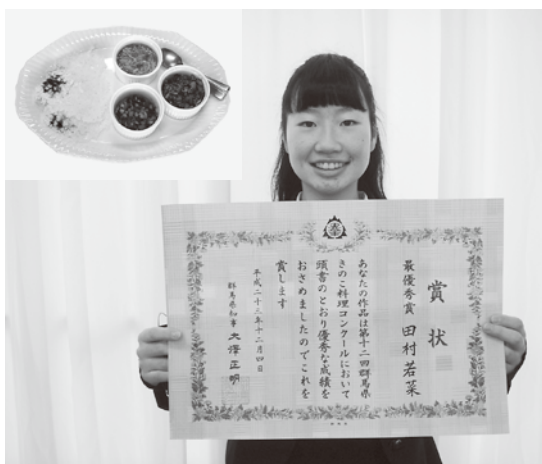 賞状
最優秀賞 田村若菜
あなたの作品は第十二回群馬県
きのこ料理コンクールにおいて
頭書のとおり優秀な成績を
おさめましたのでこれを
賞します
平成二十三年十二月四日
群馬県知事 大澤正明